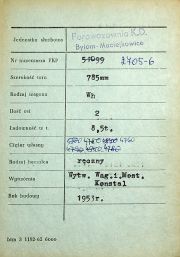 Jednostka służbowa
Parowozownia K.D.
Bytom-Maciejkowice
Nr inwentarza PKP 51099 2405-6
Szerokość toru 785mm
Rodzaj wagonu Wh
Ilość osi 2
Ładowność w t. 8,5t.
Ciężar własny
Rodzaj hamulca ręczny
Wytwórnia Wytw. Wag.i.Most.
Konstal
Rok budowy 1953r.